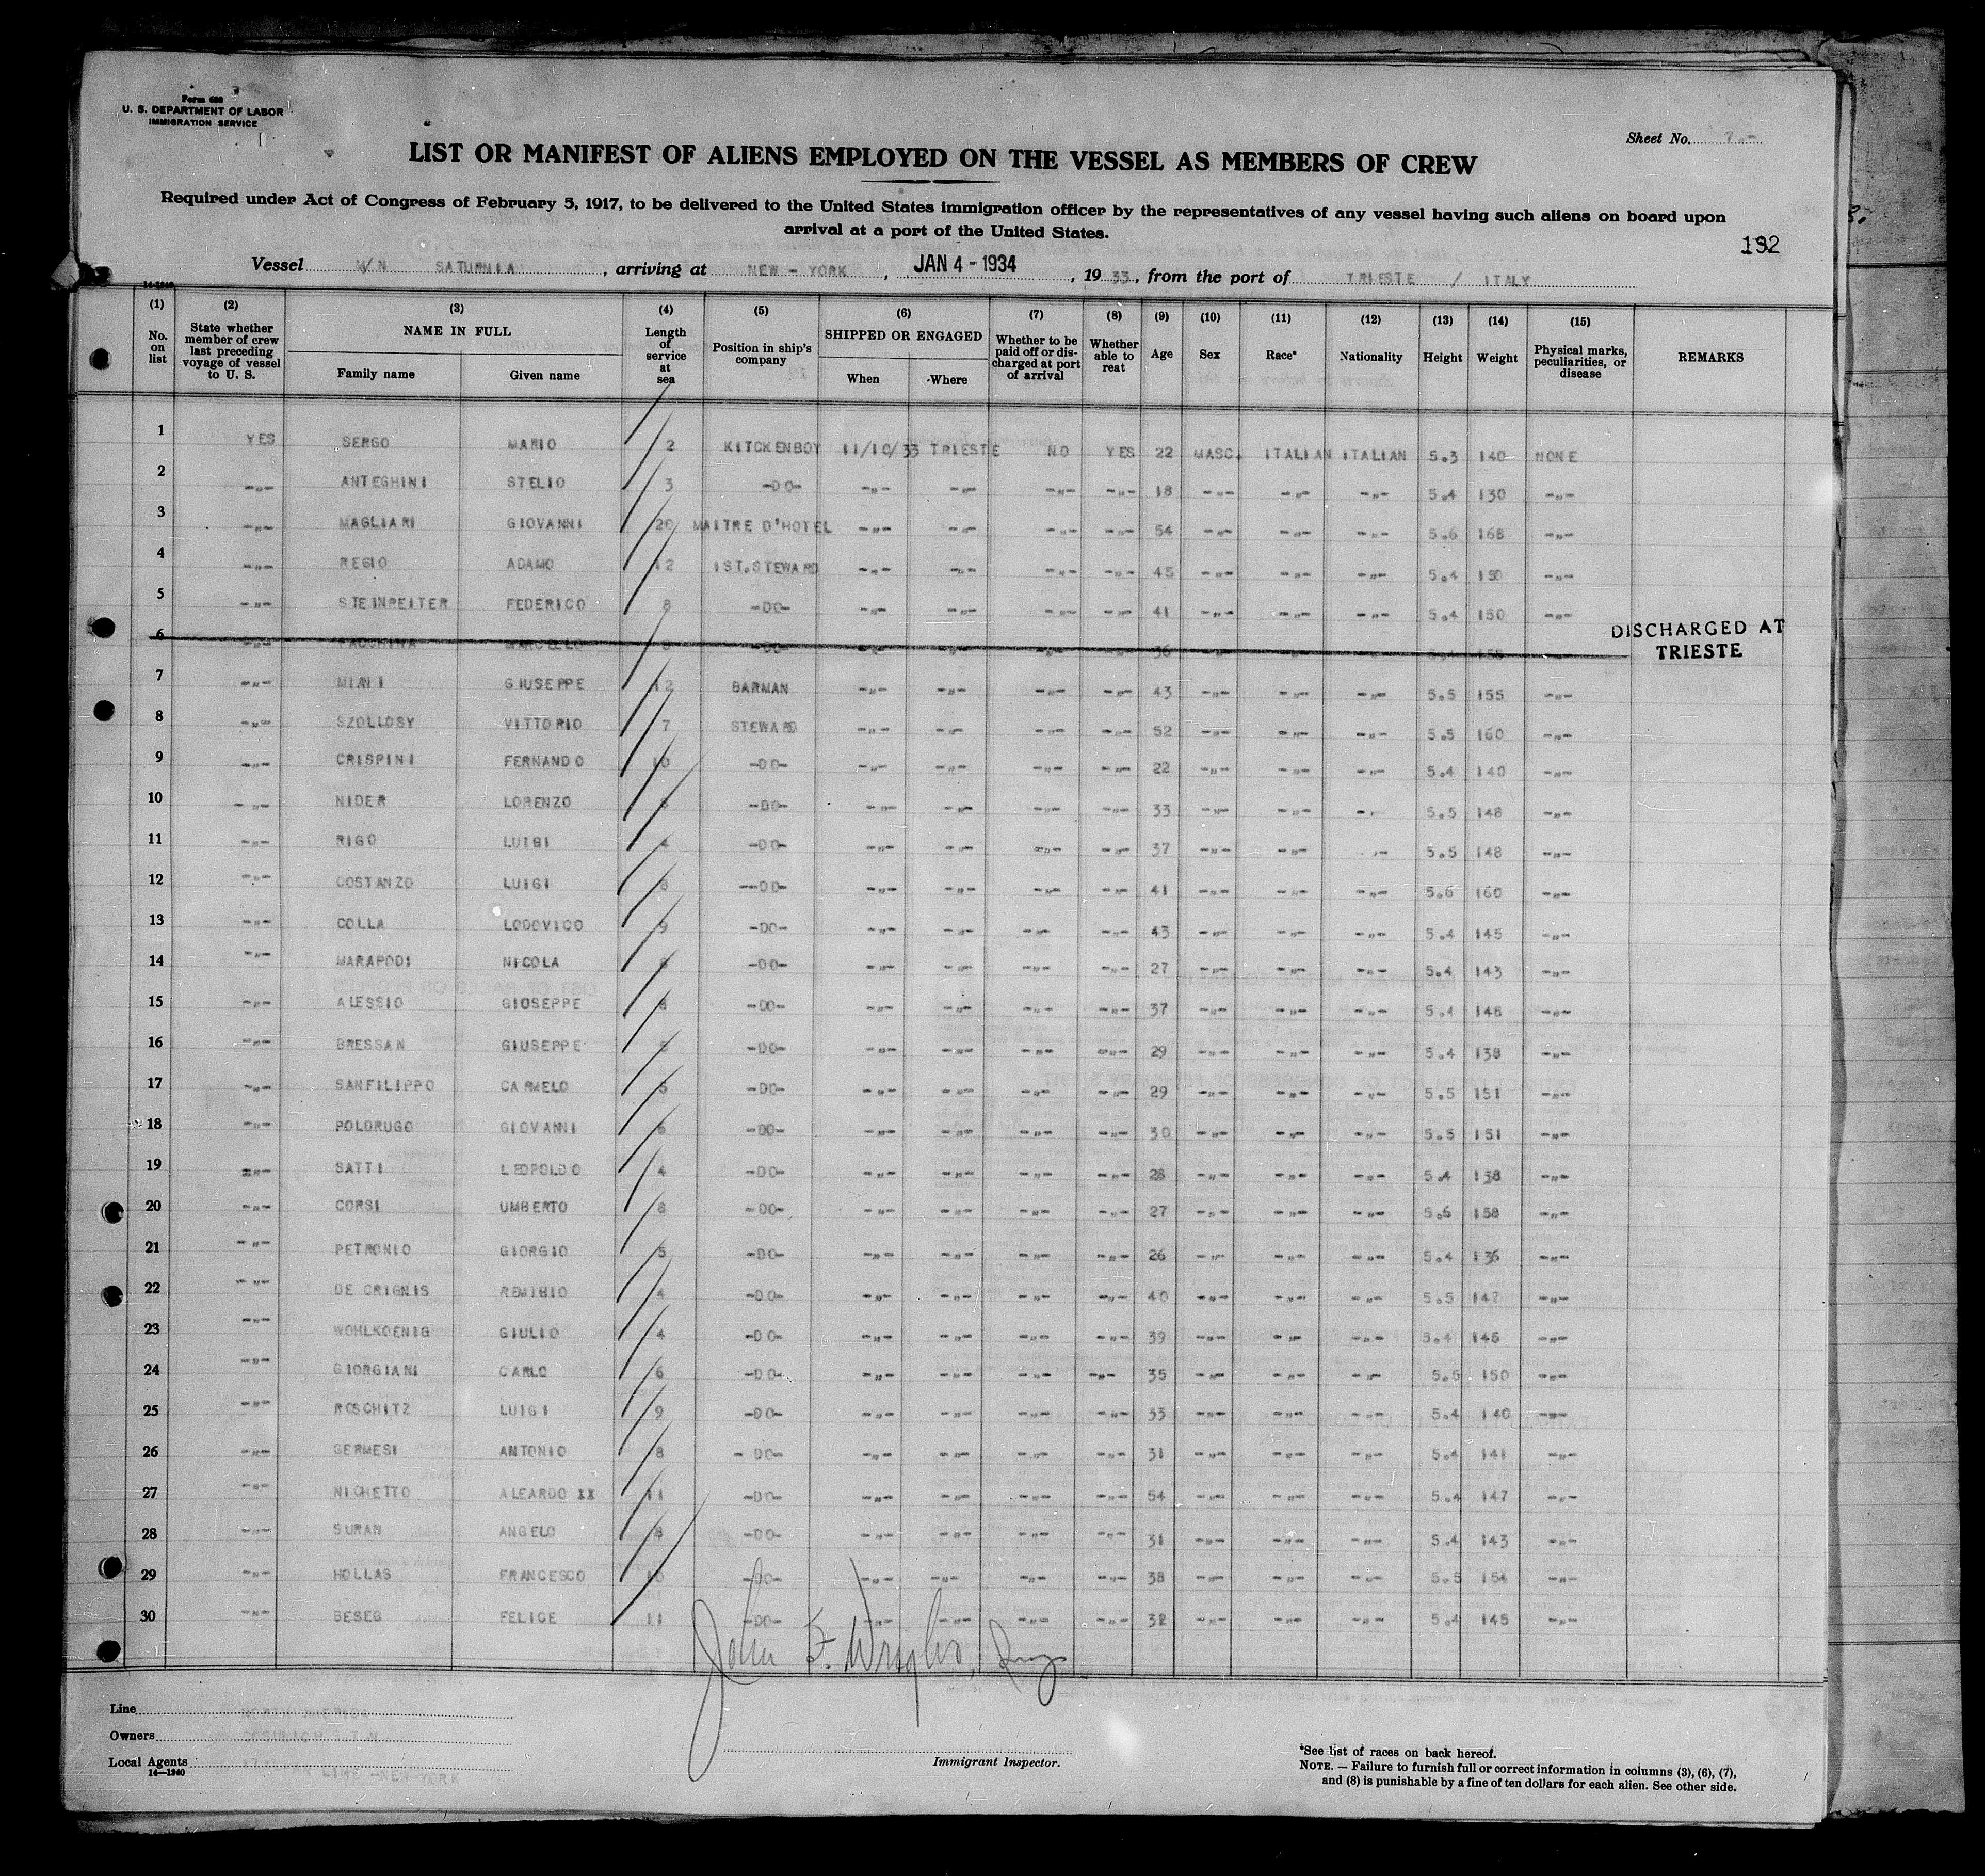 Form 680
U. S. DEPARTMENT OF LABOR
IMMIGRATION SERVICE
Sheet No.
LIST OR MANIFEST OF ALIENS EMPLOYED ON THE VESSEL AS MEMBERS OF CREW
Required under Act of Congress of February 5, 1917, to be delivered to the United States immigration officer by the representatives of any vessel having such aliens on board upon
arrival at a port of the United States.
132
Vessel M/N SATURNIA, arriving at NEW-YORK, JAN 4-1934, 19 33, from the port of TRIESTE / ITALY
14-1940
(1) No. on list (2) State whether member of crew last preceding voyage of vessel to U. S. (3) NAME IN FULL Family name Given name (4) Length of service at sea (5) Position in ship's company (6) SHIPPED OR ENGAGED When Where (7) Whether to be paid off or discharged at port of arrival (8) Whether able to reat (9) Age (10) Sex (11) Race* (12) Nationality (13) Height (14) Weight (15) Physical marks, peculiarities, or disease REMARKS
1 YES SERGO MARIO 2 KITCKENBOY 11/10/33 TRIESTE NO YES 22 MASC. ITALIAN ITALIAN 5.3 140 NONE
2 -"- ANTEGHINI STELIO 3 -DO- -"- -"- -"- -"- 18 -"- -"- -"- 5.4 130 -"-
3 -"- MAGLIARI GIOVANNI 20 MAITRE D'HOTEL -"- -"- -"- -"- 54 -"- -"- -"- 5.6 168 -"-
4 -"- REGIO ADAMO 12 1ST.STEWARD -"- -"- -"- -"- 45 -"- -"- -"- 5.4 150 -"-
5 -"- STEINREITER FEDERICO 8 -DO- -"- -"- -"- -"- 41 -"- -"- -"- 5.4 150 -"-
6 -"- MARCELLO -DO- -"- -"- -"- -"- 36 -"- -"- -"- DISCHARGED AT TRIESTE
7 -"- MIALI GIUSEPPE 12 BARMAN -"- -"- -"- -"- 43 -"- -"- -"- 5.5 155 -"-
8 -"- SZOLLOSY VITTORIO 7 STEWARD -"- -"- -"- -"- 52 -"- -"- -"- 5.5 160 -"-
9 -"- CRISPINI FERNANDO 10 -DO- -"- -"- -"- -"- 22 -"- -"- -"- 5.4 140 -"-
10 -"- NIDER LORENZO -DO- -"- -"- -"- -"- 33 -"- -"- -"- 5.5 148 -"-
11 -"- RIGO LUIGI 4 -DO- -"- -"- -"- -"- 37 -"- -"- -"- 5.5 148 -"-
12 -"- COSTANZO LUIGI 8 -DO- -"- -"- -"- -"- 41 -"- -"- -"- 5.6 160 -"-
13 -"- COLLA LODOVICO 9 -DO- -"- -"- -"- -"- 43 -"- -"- -"- 5.4 145 -"-
14 -"- MARAPODI NICOLA -DO- -"- -"- -"- -"- 27 -"- -"- -"- 5.4 143 -"-
15 -"- ALESSIO GIOSEPPE -DO- -"- -"- -"- -"- 37 -"- -"- -"- 5.4 148 -"-
16 -"- BRESSAN GIUSEPPE -DO- -"- -"- -"- -"- 29 -"- -"- -"- 5.4 138 -"-
17 -"- SANFILIPPO CARMELO 5 -DO- -"- -"- -"- -"- 29 -"- -"- -"- 5.5 151 -"-
18 -"- POLDRUGO GIOVANNI 6 -DO- -"- -"- -"- -"- 30 -"- -"- -"- 5.5 151 -"-
19 -"- SATTI LEOPOLDO 4 -DO- -"- -"- -"- -"- 28 -"- -"- -"- 5.4 138 -"-
20 -"- CORSI UMBERTO 8 -DO- -"- -"- -"- -"- 27 -"- -"- -"- 5.6 158 -"-
21 -"- PETRONIO GIORGIO 5 -DO- -"- -"- -"- -"- 26 -"- -"- -"- 5.4 136 -"-
22 -"- DE CRIGNIS REMIGIO 4 -DO- -"- -"- -"- -"- 40 -"- -"- -"- 5.5 -"-
23 -"- WOHLKOENIG GIULIO 4 -DO- -"- -"- -"- -"- 39 -"- -"- -"- 5.4 145 -"-
24 -"- GIORGIANI CARLO 6 -DO- -"- -"- -"- -"- 35 -"- -"- -"- 5.5 150 -"-
25 -"- ROSCHITZ LUIGI 9 -DO- -"- -"- -"- -"- 33 -"- -"- -"- 5.4 140 -"-
26 -"- GERMESI ANTONIO 8 -DO- -"- -"- -"- -"- 31 -"- -"- -"- 5.4 141 -"-
27 -"- NICHETTO ALEARDO XX 11 -DO- -"- -"- -"- -"- 54 -"- -"- -"- 5.4 147 -"-
28 -"- SURAN ANGELO 8 -DO- -"- -"- -"- -"- 31 -"- -"- -"- 5.4 143 -"-
29 -"- HOLLAS FRANCESCO 10 -DO- -"- -"- -"- -"- 38 -"- -"- -"- 5.5 154 -"-
30 -"- BESEG FELICE 11 -DO- -"- -"- -"- -"- 32 -"- -"- -"- 5.4 145 -"-
John F. Wright, Insp
Line
Owners COSULICH S.T.N.
Local Agents LINE -NEW-YORK
14-1940
Immigrant Inspector.
*See list of races on back hereof.
NOTE. — Failure to furnish full or correct information in columns (3), (6), (7),
and (8) is punishable by a fine of ten dollars for each alien. See other side.